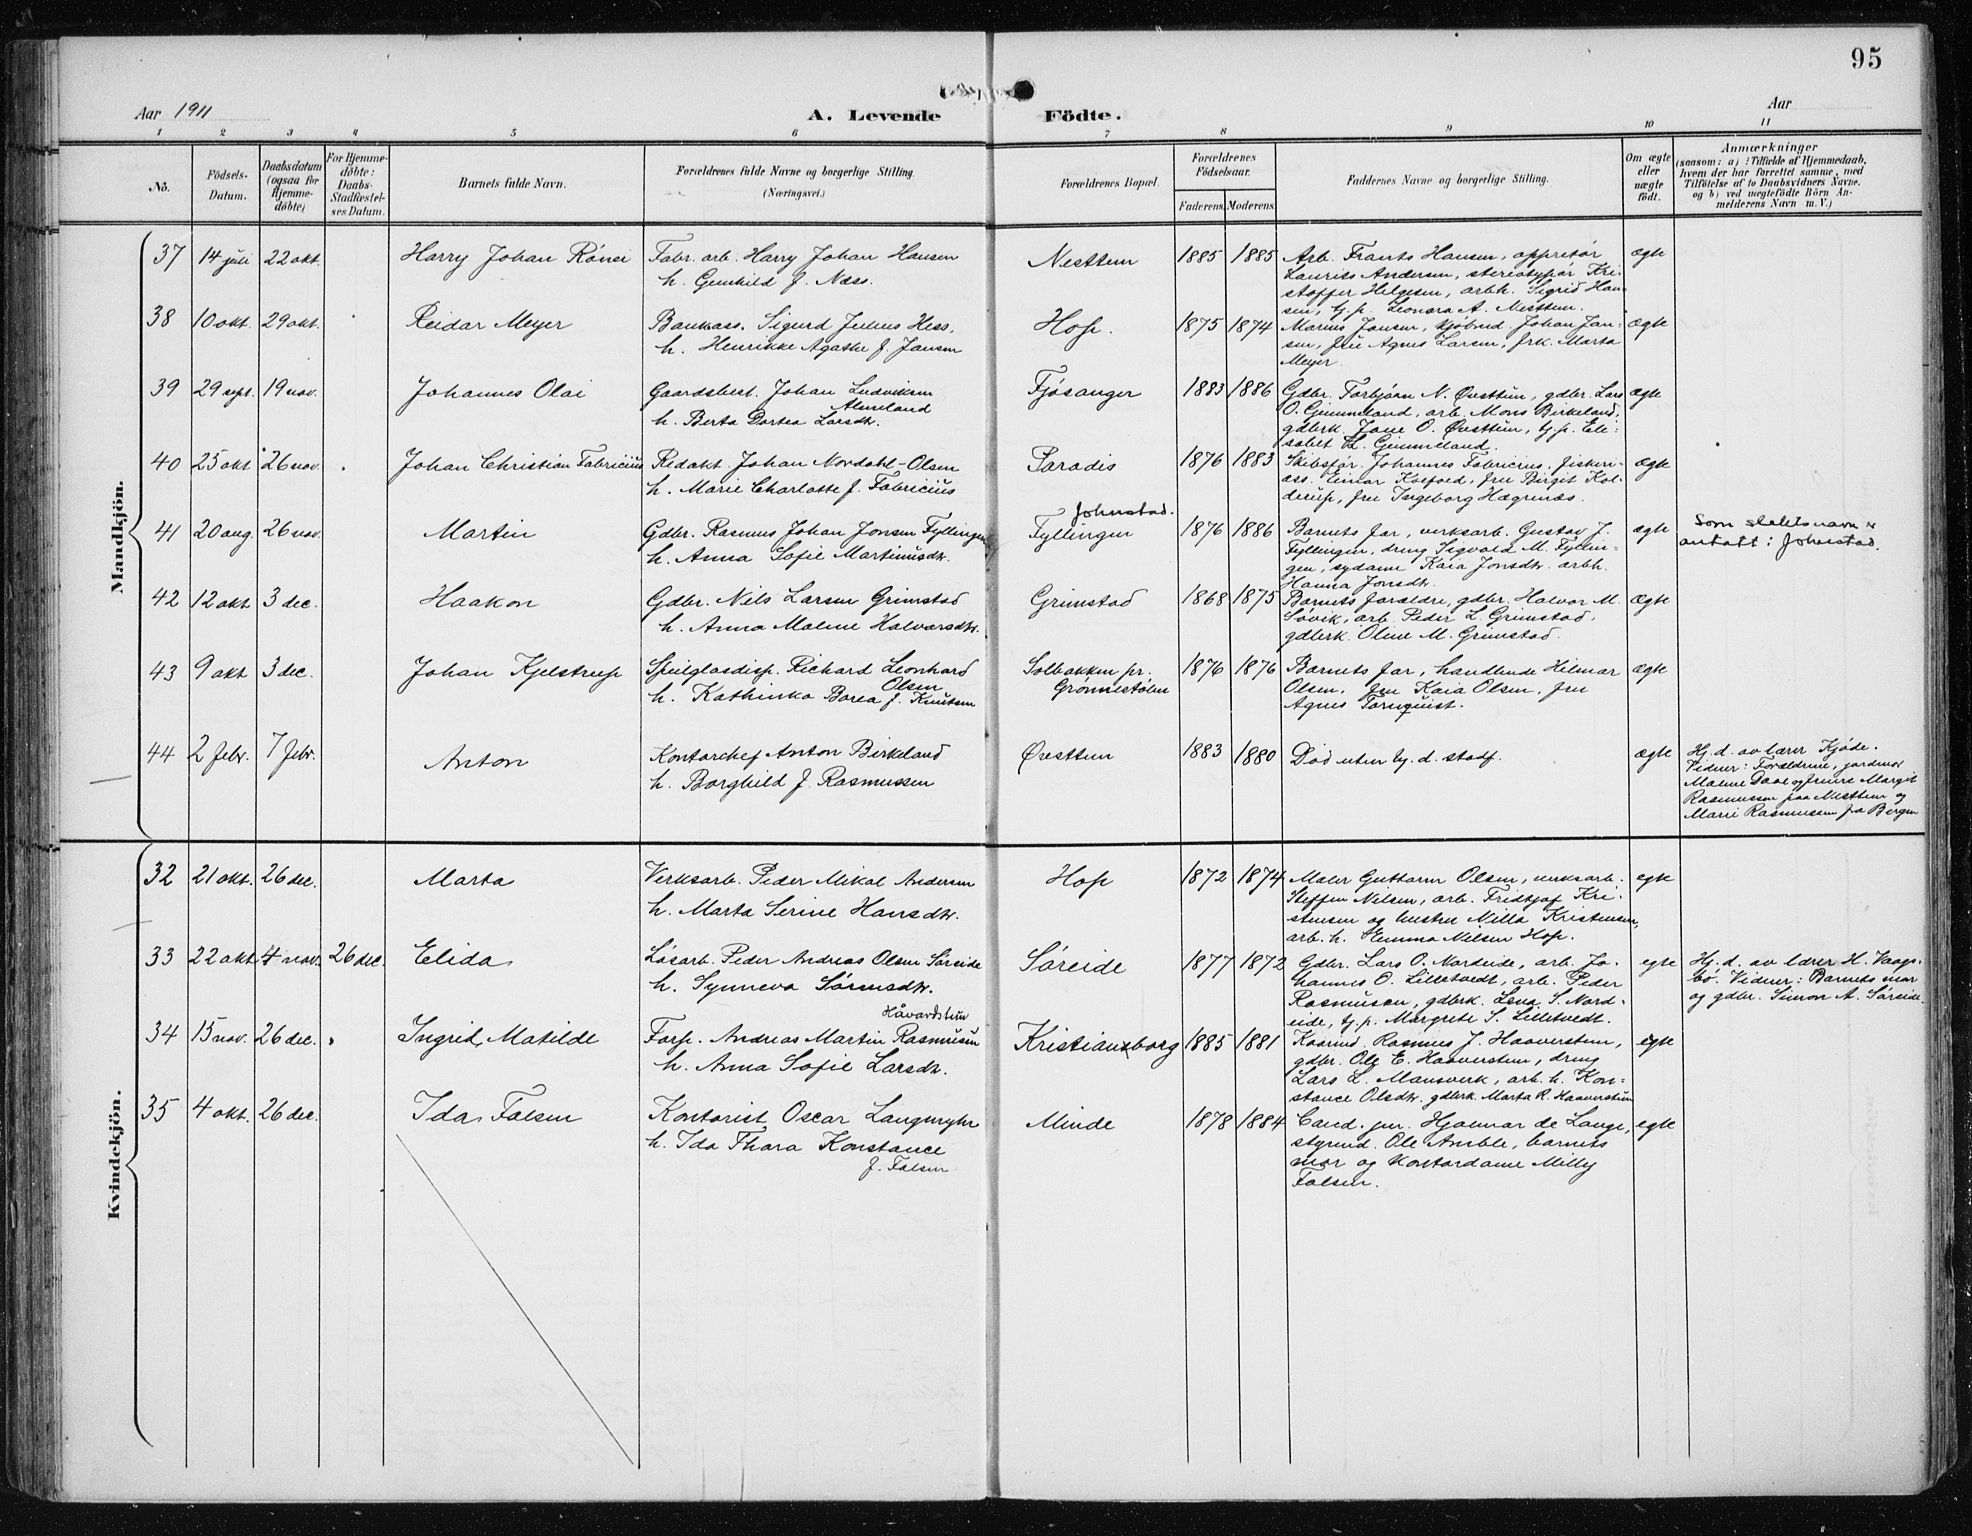 95
Aar 1911
A. Levende Födte.
Aar
1 2 3 4 5 6 7 8 9 10 11
No.
Födsels-Datum.
Daabsdatum (ogsaa for Hjemme-döbte)
For Hjemme-döbte: Daabs-Stadfæstel-ses Datum.
Barnets fulde Navn.
Forældrenes fulde Navne og borgerlige Stilling.
(Næringsvei.)
Forældrenes Bopæl.
Forældrenes Födselsaar.
Faderens. Moderens.
Faddernes Navne og borgerlige Stilling.
Om ægte eller uægte födt.
Anmærkninger
(saasom: a) i Tilfælde af Hjemmedaab,
hvem der har forrettet samme, med
Tilföielse af to Daabsvidners Navne.
og b) ved uægtefödte Börn An-
melderens Navn m. V.)
Mandkjön.
37 14 juli 22 okt. Harry Johan Rönei
Fabr. arb. Harry Johan Hansen
h. Gunhild f. Næss.
Nesttun 1885 1885
Arb. Frants Hansen, appretör
Laurits Andersen, stereotypör Kri-
stoffer Helgesen, arbh. Sigrid Han-
sen, tj. p. Leonora A. Nesttun.
ægte
38 10 okt. 29 okt. Reidar Meyer
Bankass. Sigurd Julius Hess,
h. Henrikke Agathe f. Jansen
Hop. 1875 1874
Marius Jansen, kjöbmd. Johan Jan-
sen, fru Agnes Larsen, frk. Marta
Meyer.
ægte
39 29 sept. 19 nov. Johannes Olai
Gaardsbest. Johan Ludviksen
Almeland
h. Berta Dortea Larsdtr.
Fjøsanger 1883 1886
Gdbr. Torbjørn N. Øvsttun, gdbr. Lars
O. Gimmeland, arb. Mons Birkeland,
gdbrk. Jane O. Øvsttun, tj. p. Eli-
sabet L. Gimmeland.
ægte
40 25 okt. 26 nov. Johan Christian Fabricius
Redakt. Johan Nordahl-Olsen
h. Marie Charlotte f. Fabricius
Paradis 1876 1883
Skibsfør. Johannes Fabricius, fiskeri-
ass. Einar Koefoed, fru Birgit Kol-
derup, fru Ingeborg Hægrenæs.
ægte
41 20 aug. 26 nov. Martin
Gdbr. Rasmus Johan Jonsen Fyllingen
h. Anna Sofie Martinusdtr.
Johnstad.
Fyllingen 1876 1886
Barnets far, verksarb. Gustav J.
Fyllingen, dreng Sigvald M. Fyllin-
gen, sydame Kaia Jonsdtr. arbh.
Hanna Jonsdtr.
ægte
Som slektsnavn er
antatt: Johnstad.
42 12 okt. 3 dec. Haakon
Gdbr. Nils Larsen Grimstad
h. Anna Malene Halvorsdtr.
Grimstad 1868 1875
Barnets forældre, gdbr. Halvor M.
Søvik, arb. Peder L. Grimstad,
gdbrk. Oline M. Grimstad.
ægte
43 9 okt 3 dec. Johan Kjelstrup
Speilglasdisp. Richard Leonhard
Olsen
h. Kathinka Borea f. Knutsen
Solbakken pr.
Grønnestølen 1876 1876
Barnets far, handlende Hilmar
Olsen, fru Kaia Olsen, fru
Agnes Tornquist.
ægte
44 2 febr. 7 febr. Anton
Kontorchef Anton Birkeland
h. Borghild f. Rasmussen
Øvsttun 1883 1880
Död uten hj. d. stadf.
ægte
Hj. d. av lærer Kjöde.
Vidner: Forældrene, jordmor
Malene Daae og frøkne Margit
Rasmussen paa Nesttun og
Marie Rasmussen fra Bergen
Kvindekjön.
32 21 okt. 26 dec. Marta
Verksarb. Peder Mikal Andersen
h. Marta Serine Hansdtr.
Hop 1872 1874
Maler Guttorm Olsen, verksarb.
Steffen Nilsen, arb. Fridtjof Kri-
stensen og hustru Nilla Kristensen,
arb. h. Emma Nilsen Hop.
egte
33 22 okt. 4 nov. 26 dec. Elida
Løsarb. Peder Andreas Olsen Søreide
h. Synneva Sørensdtr.
Søreide 1877 1872
Gdbr. Lars O. Nordeide, arb. Jo-
hannes O. Lilletvedt, arb. Peder
Rasmussen, gdbrk. Lena S. Nord-
eide, tj. p. Margrete S. Lilletvedt.
egte
Hj. d. av lærer H. Vaags-
bö. Vidner: Barnets mor
og gdbr. Simon A. Søreide.
34 15 nov. 26 dec. Ingrid Matilde
Håvardstun
Forp. Andreas Martin Rasmussen
h. Anna Sofie Larsdtr.
Kristiansborg 1885 1881
Kaarmd. Rasmus J. Haaverstun,
gdbr. Ole E. Haaverstun, dreng
Lars L. Mansverk, arb. h. Kon-
stance Olsdtr. gdbrk. Marta R. Haaverstun
egte
35 4 okt. 26 dec. Ida Falsen
Kontorist Oscar Langmyhr
h. Ida Thora Konstance
f. Falsen
Minde 1878 1884
Cand. jur. Hjalmar de Lange,
styrmd. Ole Amble, barnets
mor og kontordame Milly
Falsen.
egte